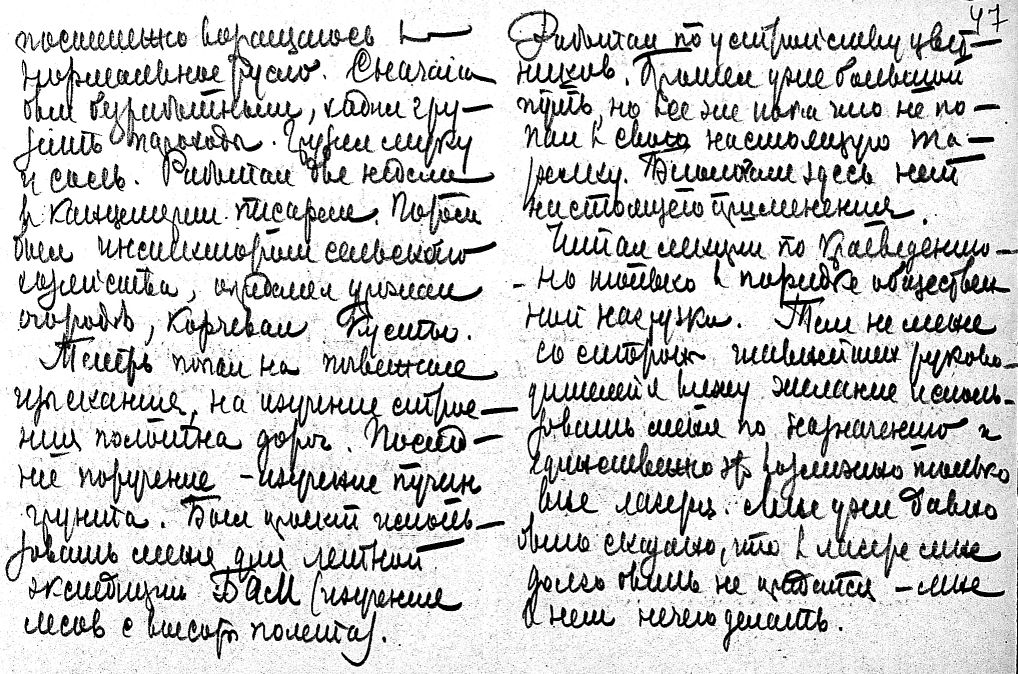 постепенно возращалось в
нормальное русло. Сначала
был безработным, ходил гру-
зить пароходы. Грузил муку
и соль. Работал две недели
в канцелярии писарем. Потом
был инспектором сельского
хозяйства,
огородов, корчевал кусты.
Теперь попал на
изыскания, на изучение строе-
ния полотна дорог. Послед-
нее поручение - изучение пучин
грунта. Был проект исполь-
зовать меня для летной
экспедиции БАМ (изучение
лесов с высоты полета).
47
Работал по устройству цвет-
ников. Прошел уже большой
путь, но все же пока что не по-
пал в свою настоящую та-
релку. Биологам здесь нет
настоящего применения.
Читал лекции по краеведению -
- но только в порядке обществен-
ной нагрузки. Тем не менее
со стороны руково-
дителей я вижу желание исполь-
зовать меня по назначению и
возможно только
вне лагеря. Мне уже давно
было сказано, что в лагере мне
долго быть не придется - мне
в нем нечего делать.